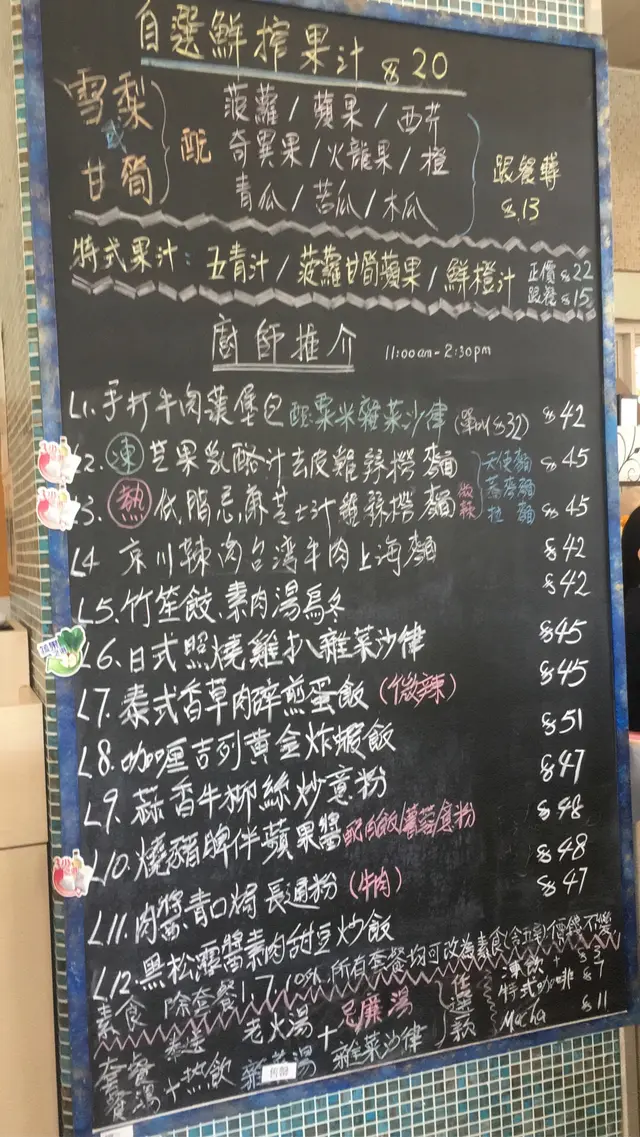 自選鮮搾果汁 $20
雪梨 或 甘筍 配
菠蘿/蘋果/西芹
奇異果/火龍果/橙
青瓜/苦瓜/木瓜
跟餐轉 $13
特式果汁: 五青汁/菠蘿甘筍蘋果/鮮橙汁 正價$22
跟餐$15
廚師推介 11:00am-2:30pm
L1.手打牛肉漢堡包配粟米雜菜沙律(單叫$32) $42
L2.凍芒果乳酪汁去皮雞絲撈麵 天使麵 $45
蕎麥麵
L3.熱低脂忌廉芝士汁雞絲撈麵 微辣 拉麵 $45
L4 京川辣肉台湾牛肉上海麵 $42
L5.竹笙餃、素肉湯烏冬 $42
L6.日式照燒雞扒雜菜沙律 $45
L7.泰式香草肉碎煎蛋飯(微辣) $45
L8.咖喱吉列黃金炸蝦飯 $51
L9.蒜香牛柳絲炒意粉 $47
L10.燒豬髀伴蘋果醬配肉飯/薯蓉/意粉 $48
L11.肉醬青口焗長通粉(牛肉) $48
L12.黑松露醬素肉甜豆炒飯 $47
素食 除套餐1,7,10外,所有套餐均可改為素食(含五辛)價錢不變
套餐 老火湯 + 忌廉湯 任選款 凍飲+$3
特式咖啡 $7
餐湯+熱飲 雜菜沙律 Macha $11